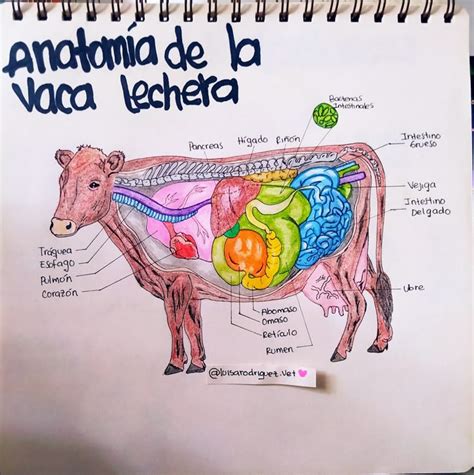 Anatomía de la
Vaca lechera
Bacterias
Intestinales
Pancreas
Hígado
Riñón
Intestino
Grueso
Vejiga
Intestino
Delgado
Tráquea
Esofago
Pulmón
Corazón
Ubre
Abomaso
Omaso
Retículo
Rumen
@luisarodriguez.vet